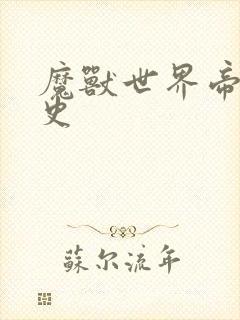 魔獸世界帝
史
蘇尔流年